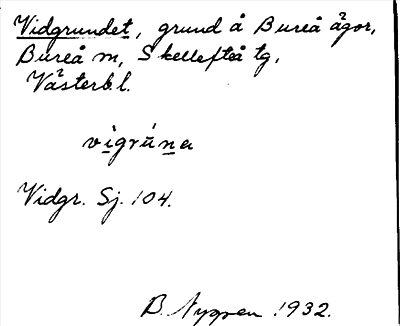 Vidgrundet, grund å Bureå ägor,
Bureå m, Skellefteå tg,
Västerb. l.
vigrúna
Vidgr. Sj. 104.
B. Nygren 1932.